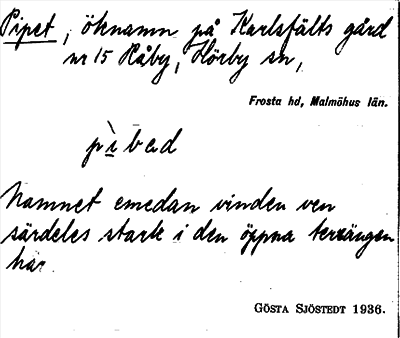 Pipet, öknamn på Karlsfälts gård
nr 15 Råby, Hörby sn,
Frosta hd, Malmöhus län.
Namnet emedan vinden ven
särdeles stark i den öppna terrängen
här
GÖSTA SJÖSTEDT 1936.